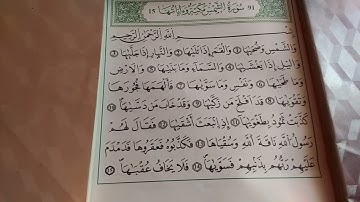 91 سورة الشمس مكية وءاياتها 15
بسم الله الرحمن الرحيم
والشمس وضحىها ١ والقمر إذا تلىها ٢ والنهار إذا جلىها
٣ واليل إذا يغشىها ٤ والسماء وما بنىها ٥ والأرض
وما طحىها ٦ ونفس وما سوىها ٧ فألهمها فجورها
وتقوىها ٨ قد أفلح من زكىها ٩ وقد خاب من دسىها ١٠
كذبت ثمود بطغوىها ١١ إذ انبعث أشقىها ١٢ فقال لهم
رسول الله ناقة الله وسقيىها ١٣ فكذبوه فعقروها فدمدم
عليهم ربهم بذنبهم فسوىها ١٤ فلا يخاف عقبىها ١٥